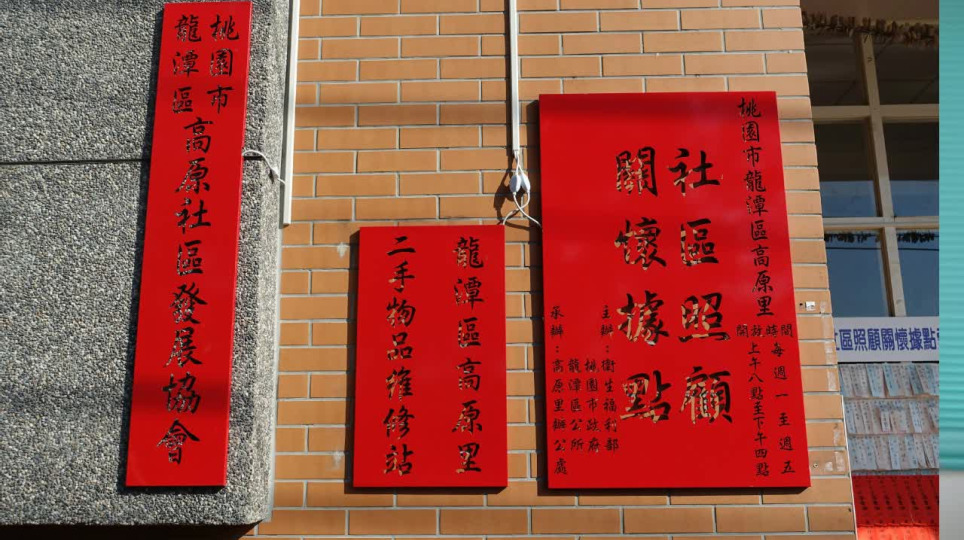 桃園市
龍潭區
高原社區發展協會
龍潭區高原里
二手物品維修站
桃園市龍潭區高原里
社區照顧
關懷據點
開放時間
每週一至週五
上午八點至下午四點
主辦：衛生福利部
桃園市政府
龍潭區公所
承辦：高原里辦公處
區照顧關懷據點